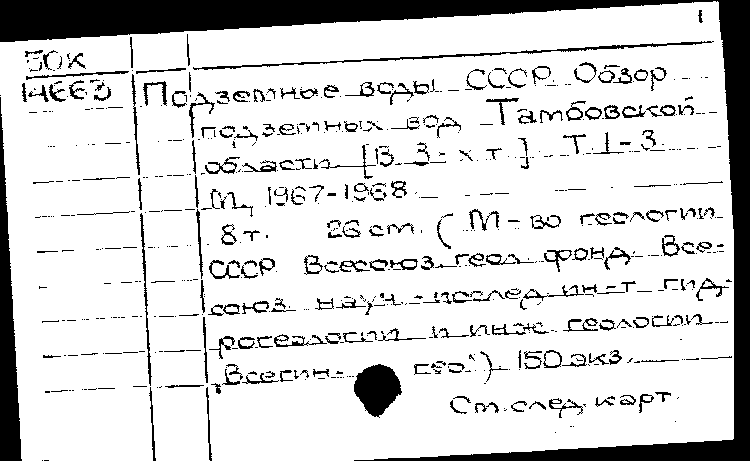 1
50к
14663 Подземные воды СССР Обзор
подземных вод Тамбовской
области [В 3-х т.] Т. 1-3
М., 1967-1968
8 т. 26 см. (М-во геологии
СССР Всесоюз. геол. фонд. Все-
союз. науч.-послед. ин-т гид-
рогеологии и инж. геологии
"Всегин- гео"). 150 экз.
См. след. карт.